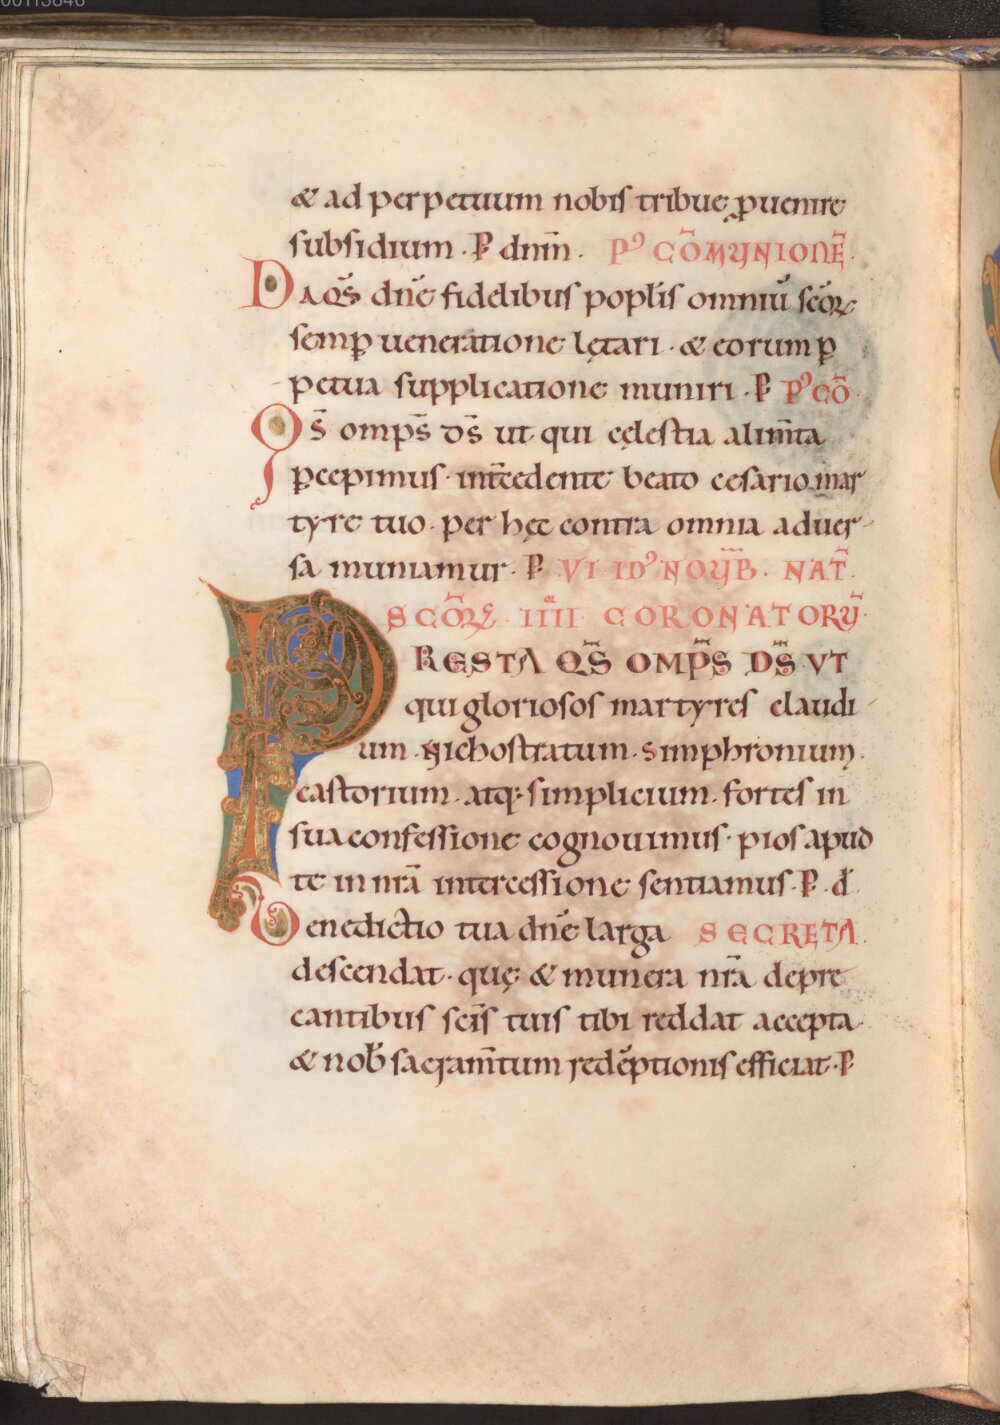 & ad perpetuum nobis tribue ꝓuenire
subsidium · P̵ dnm̄ · Pꝰ CO᷃MUNIONĒ
DA QS̄ dn̄e fidelibus popl̄is omniū sc̄oꝝ
semꝑ ueneratione lętari · & eorum ꝑ
petua supplicatione muniri · P̵ PꝰCŌ
QS̄ omps̄ ds̄ ut qui cęlestia alim̄ta
ꝑcepimus · int̄cedente beato cesario mar
tyre tuo · per hęc contra omnia aduer
sa muniamur · P̵ VI IDꝰ NOUB̄ · NAT̄
SCŌꝜ · IIII͛ CORONATORŪ
PRESTA QS̄ OMP̄S DS̄ VT
qui gloriosos martyres claudi
um · Nichostratum · Simphronium ·
castorium · atq; · simplicium · fortes in
sua confessione cognouimus · pios apud
te in nr̄a intercessione sentiamus · P̵ · d̄
Benedictio tua dn̄e larga SECRETA
descendat · quę & munera nr̄a depre
cantibus sc̄is tuis tibi reddat accepta ·
& nob̄ sacram̄tum redēptionis efficiat · P̵